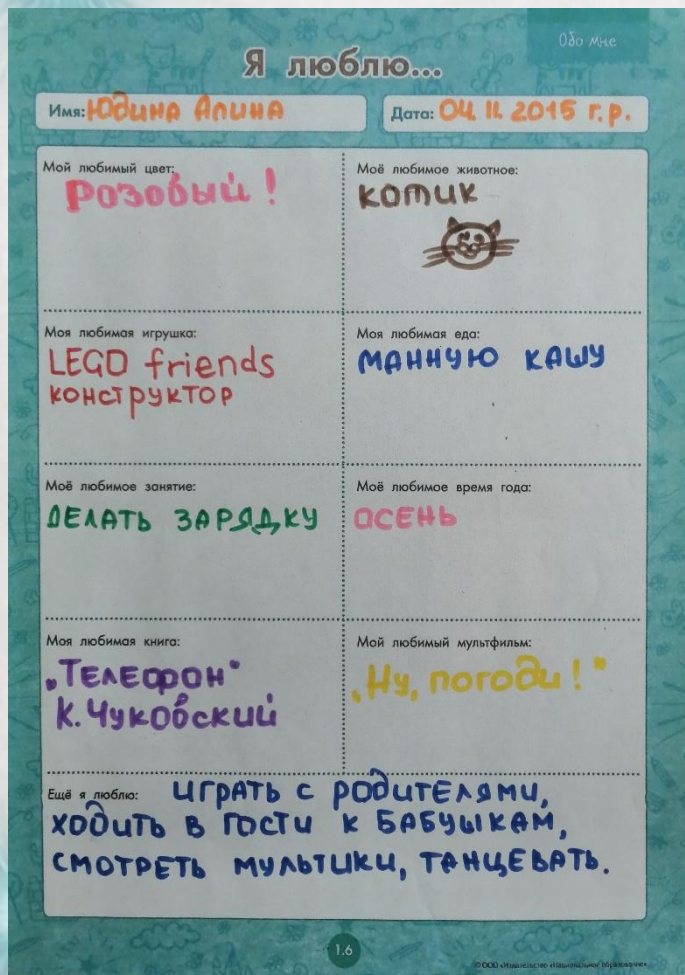 Обо мне
Я люблю...
Имя: Юдина Алина
Дата: 04. 11. 2015 г.р.
Мой любимый цвет:
Розовый!
Моё любимое животное:
котик
Моя любимая игрушка:
LEGO friends
конструктор
Моя любимая еда:
манную кашу
Моё любимое занятие:
делать зарядку
Моё любимое время года:
осень
Моя любимая книга:
„Телефон"
К. Чуковский
Мой любимый мультфильм:
„Ну, погоди!"
Ещё я люблю: играть с родителями,
ходить в гости к бабушкам,
смотреть мультики, танцевать.
1.6
© ООО «Издательство «Национальное образование»